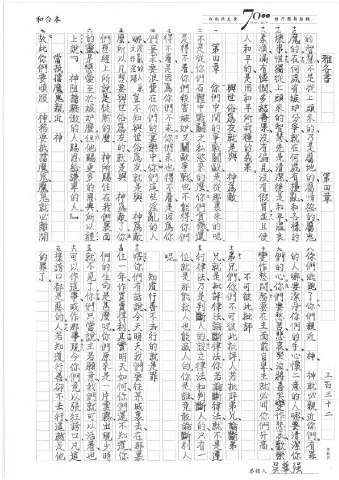 和合本
7000
雅各書 第四章 三百三十二
的智慧不是從上頭來的乃是屬地的屬情慾的屬鬼
魔的在何處有嫉妒分爭就在何處有擾亂和各樣的
壞事惟獨從上頭來的智慧先是清潔後是和平溫良
柔順滿有憐憫多結善果沒有偏見沒有假冒並且使
人和平的是用和平所栽種的義果
第四章 與世俗為友就是與 神為敵
你們中間的爭戰鬥毆是從那裏來的呢
不是從你們百體中戰鬥之私慾來的麼你們貪戀還
是得不着你們殺害嫉妒又鬥毆爭戰也不能得你們
得不着是因為你們不求你們求也得不着是因為你
們妄求要浪費在你們的宴樂中你們這些淫亂的人
哪豈不知與世俗為友就是與 神為敵
麼所以凡想要與世俗為友的就是與 神為敵了你
們想經上所說是徒然的麼 神所賜住在我們裏面
的靈是戀愛至於嫉妒麼但他賜更多的恩典所以經
上說『神阻擋驕傲的人賜恩給謙卑的人』
當抵擋魔鬼親近 神
故此你們要順服 神務要抵擋魔鬼魔鬼就必離開
你們逃跑了你們親近 神 神就必親近你們有罪
的人哪要潔淨你們的手心懷二意的人哪要清潔你
們的心你們要愁苦悲哀哭泣將喜笑變作悲哀歡樂
變作愁悶務要在主面前自卑主就必叫你們升高
不可彼此批評
弟兄們你們不可彼此批評人若批評弟兄論斷弟
兄就是批評律法論斷律法你若論斷律法就不是遵
行律法乃是判斷人的設立律法和判斷人的只有一
位就是那能救人也能滅人的你是誰竟敢論斷別人
呢
知道行善不去行的就是罪
嗐你們有話說今天明天我們要往某城裏去在那裏
住一年作買賣得利其實明天如何你們還不知道你
們的生命是甚麼呢你們原來是一片雲霧出現少時
就不見了你們只當說主若願意我們就可以活着也
可以作這事或作那事現今你們竟以張狂誇口凡這
樣誇口都是惡的人若知道行善卻不去行這就是他
的罪了